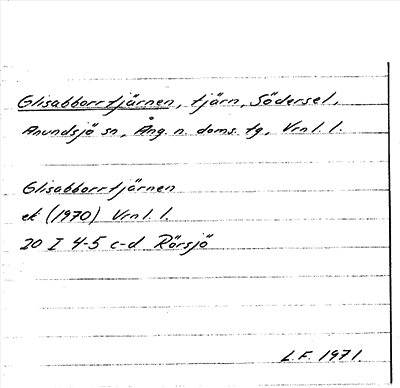 Glisabborrtjärnen, tjärn, Södersel,
Anundsjö sn, Ång. n. doms. tg, Vrnl. l.
Glisabborrtjärnen
ek (1970) Vrnl. l.
20 I 4-5 c-d Rörsjö
L.F. 1971